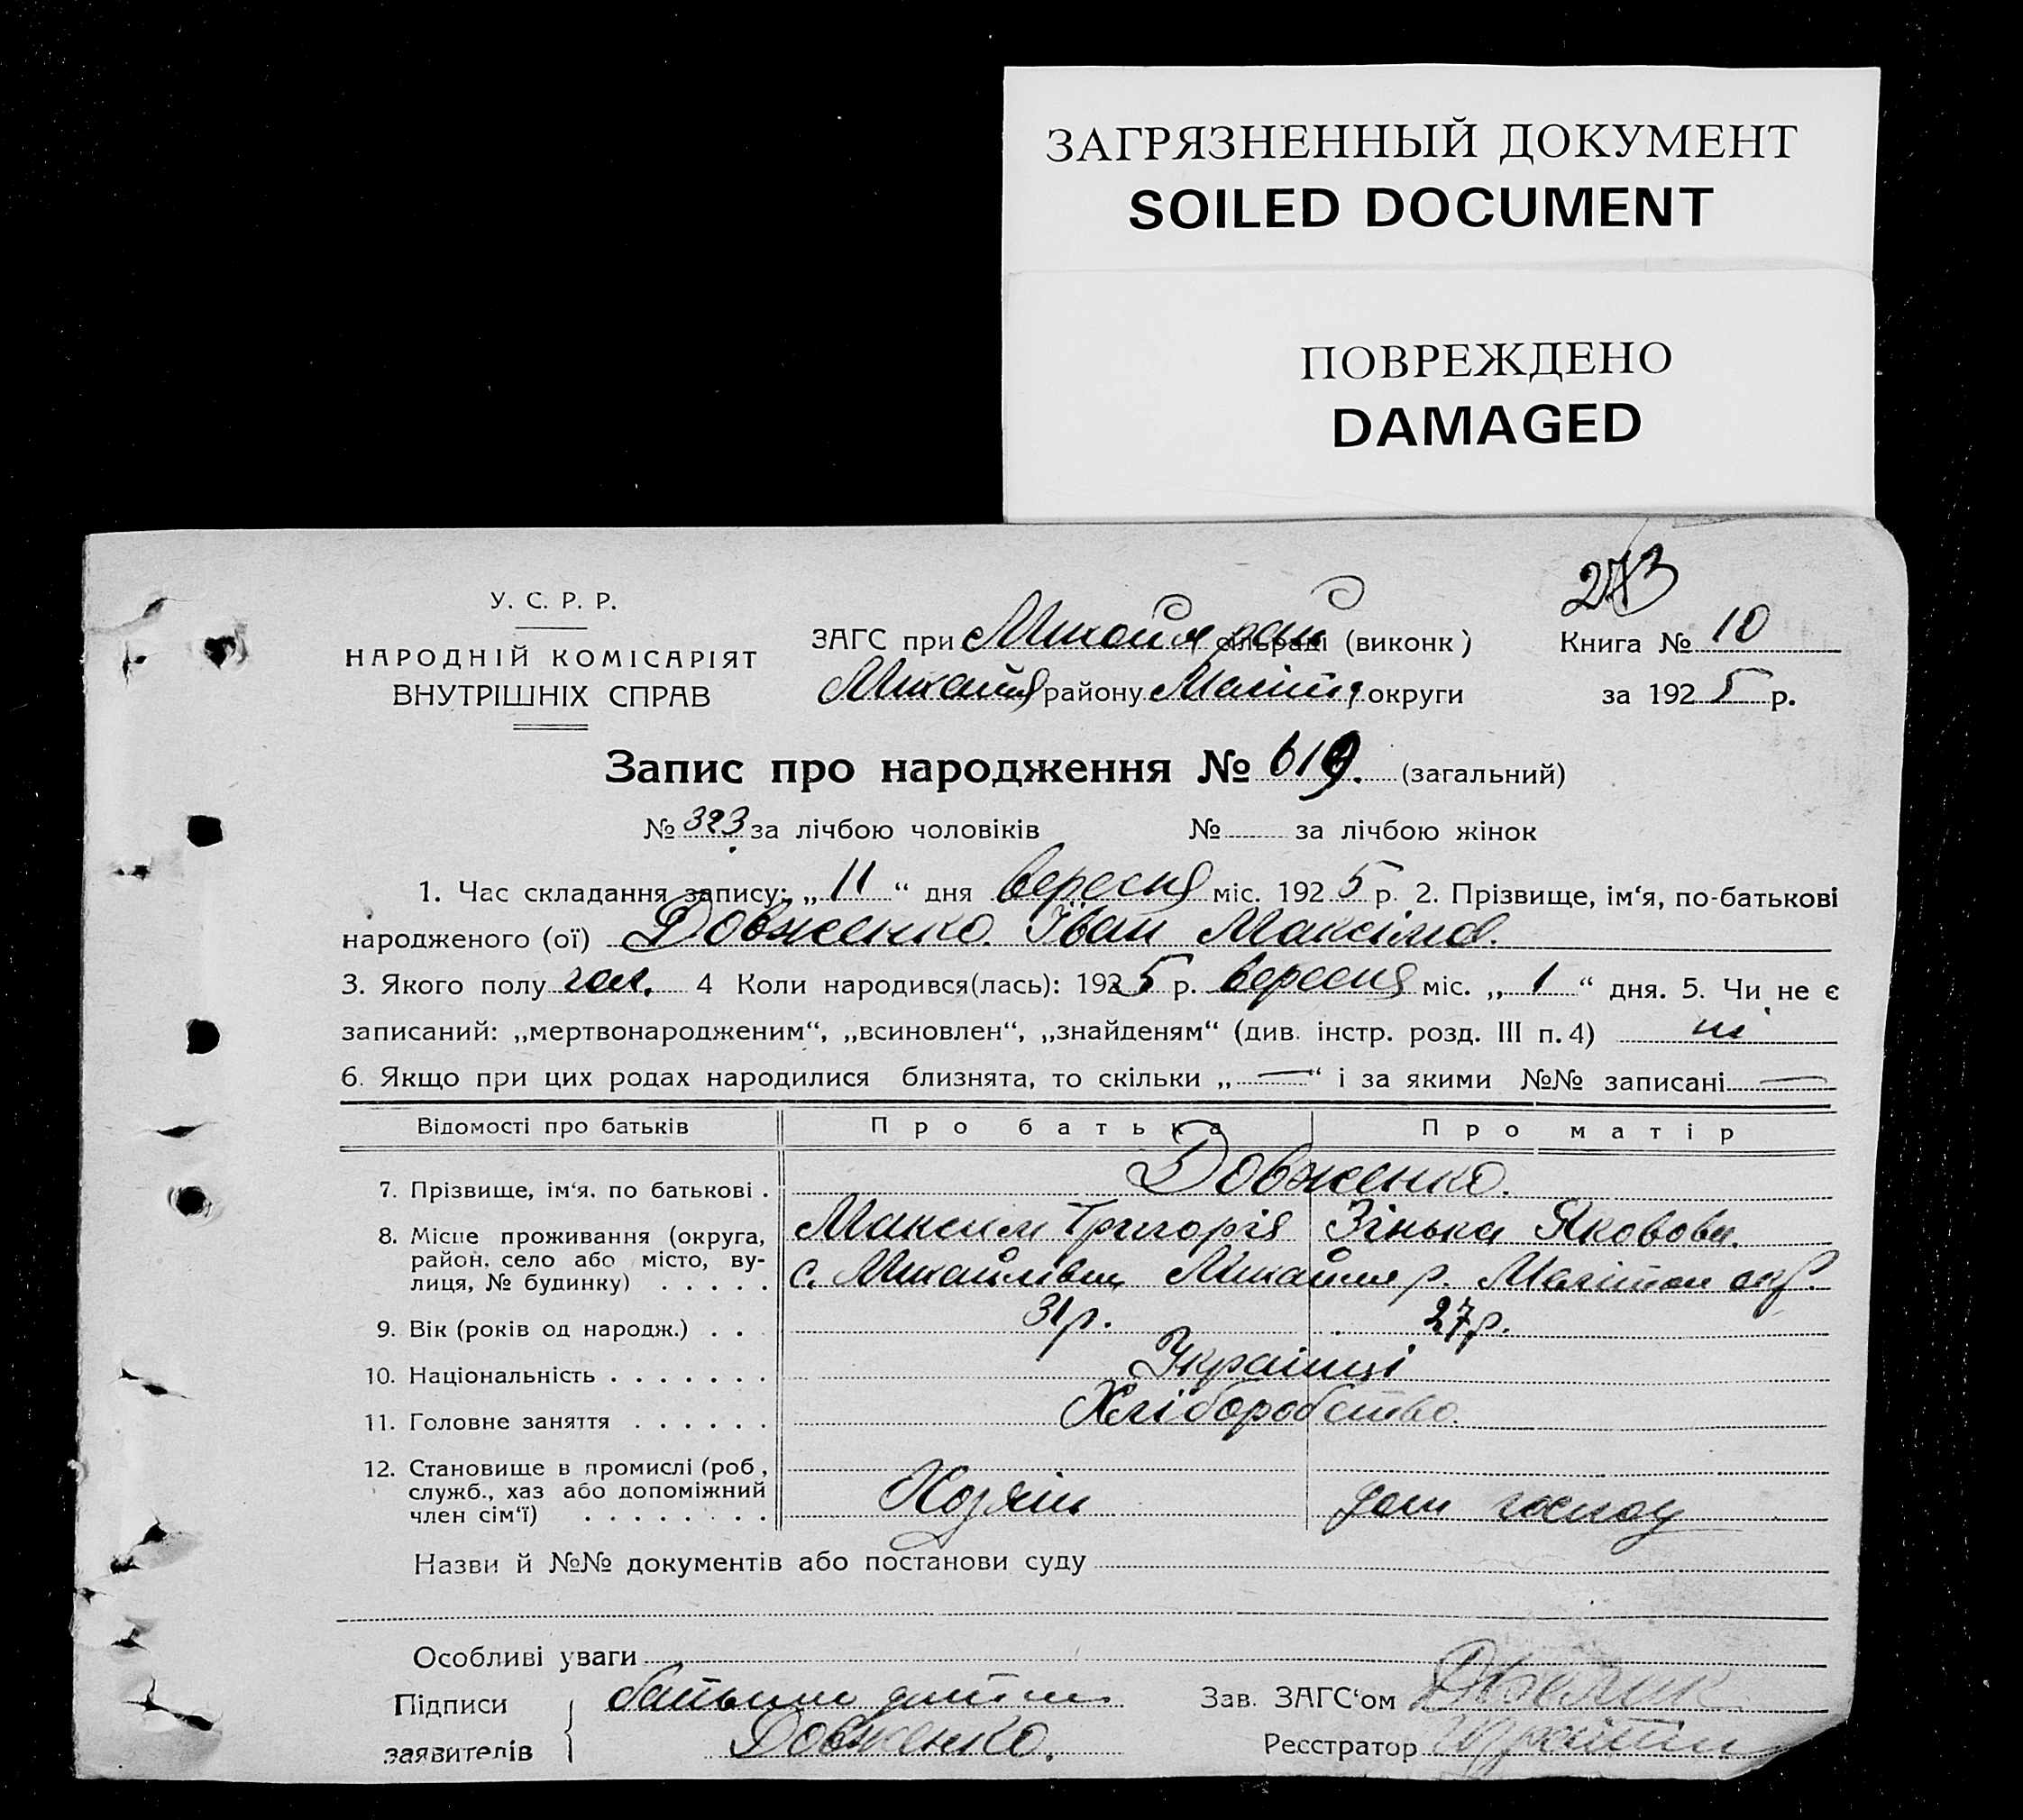 ЗАГРЯЗНЕННЫЙ ДОКУМЕНТ
SOILED DOCUMENT
ПОВРЕЖДЕНО
DAMAGED
273
У. С. Р. Р.
НАРОДНІЙ КОМІСАРІЯТ
ВНУТРІШНІХ СПРАВ
ЗАГС при Михайл рай сільраді (виконк)
Михайл району округи
Книга № 10
за 1925 р.
Запис про народження № 619. (загальний)
№ 323 за лічбою чоловіків № за лічбою жінок
1. Час складання запису: „ 11 “ дня вересня міс. 1925 р. 2. Прізвище, ім‘я, по-батькові
народженого (ої) Довженко Іван Максімов.
3. Якого полу чол. 4 Коли народився(лась): 1925 р. вересня міс. „ 1 “ дня. 5. Чи не є
записаний: „мертвонародженим“, „всиновлен“, „знайденям“ (див. інстр. розд. III п. 4) ні
6. Якщо при цих родах народилися близнята, то скільки „ — “ і за якими №№ записані —
Відомості про батьків Про батька Про матір
7. Прізвище, ім‘я, по батькові . Довженко.
8. Місце проживання (округа, Максим Григорів Зінька Яковова.
район, село або місто, ву-
лиця, № будинку) . . . . . с. Михайлівці Михайл р.
9. Вік (років од народж.) . . . 31 р. 27 р.
10. Національність . . . . . . . Українці
11. Головне заняття . . . . . . Хліборобство.
12. Становище в промислі (роб.,
служб., хаз або допоміжний
член сім‘ї) . . . . . . . . Хозяін дом господ
Назви й №№ документів або постанови суду
Особливі уваги
Підписи батько дитини Зав. ЗАГС‘ом
заявителів Довженко. Реєстратор